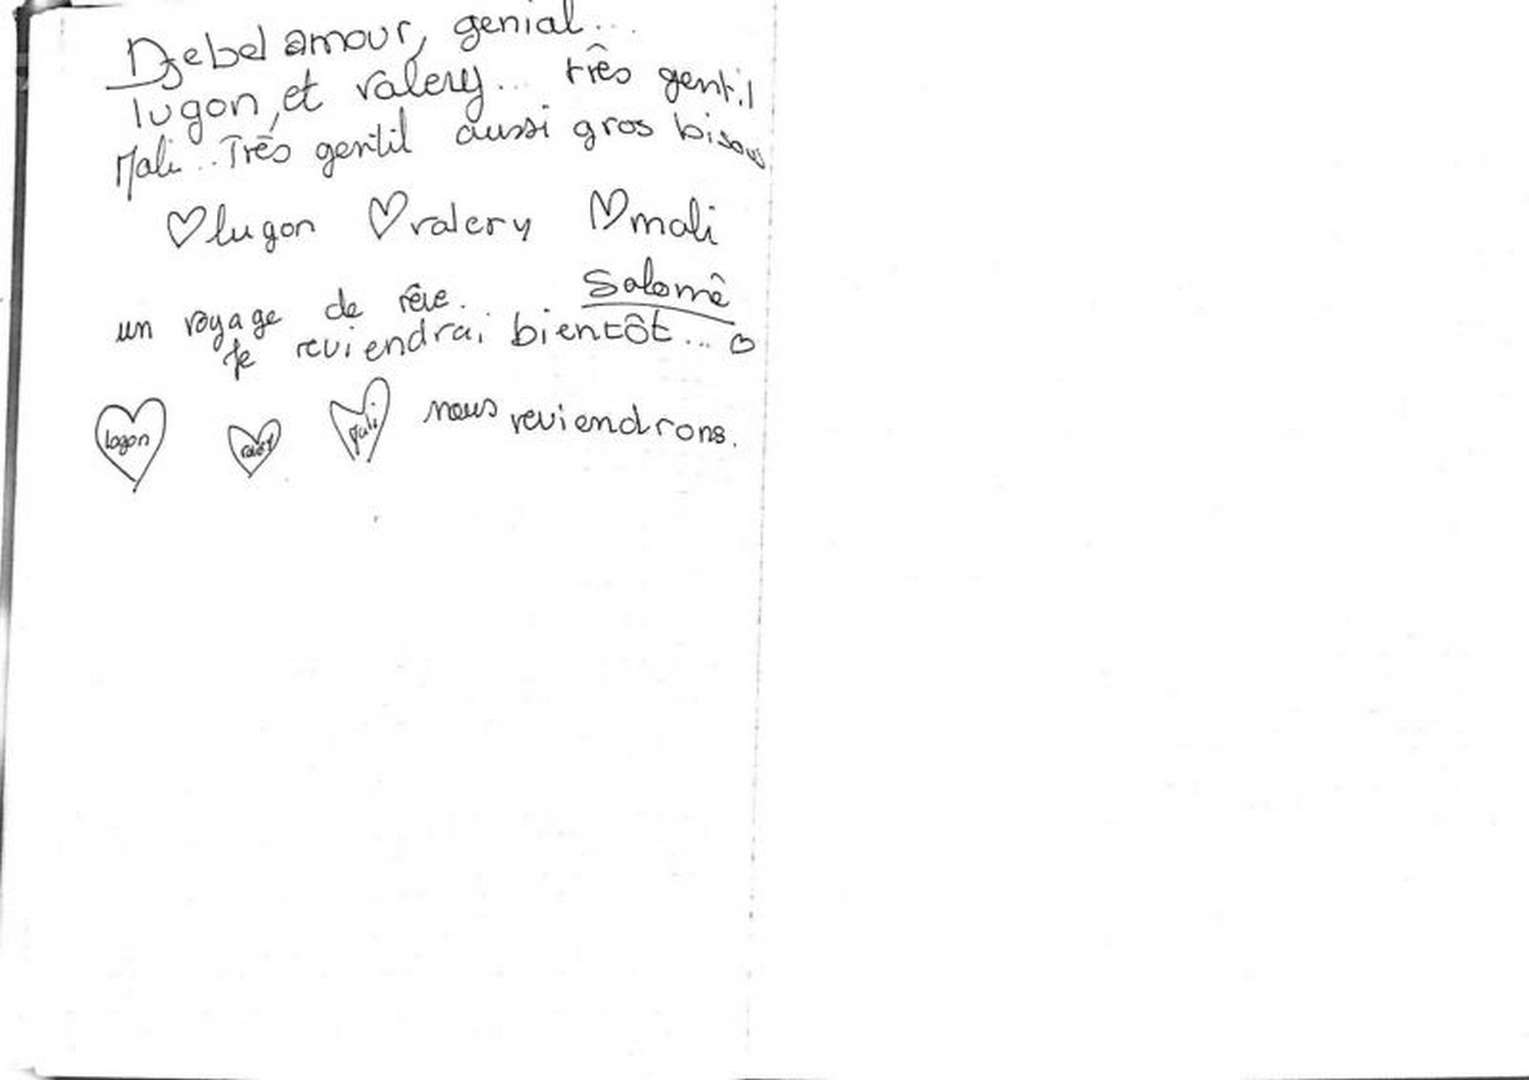 Djebel amour, genial...
lugon, et valery... três gentil
Mali... Três gentil aussi gros bisous
♡lugon ♡valery ♡mali
Salomê
un voyage de rêve.
Je reviendrai bientôt... ♡
logon valery Mali nous reviendrons.